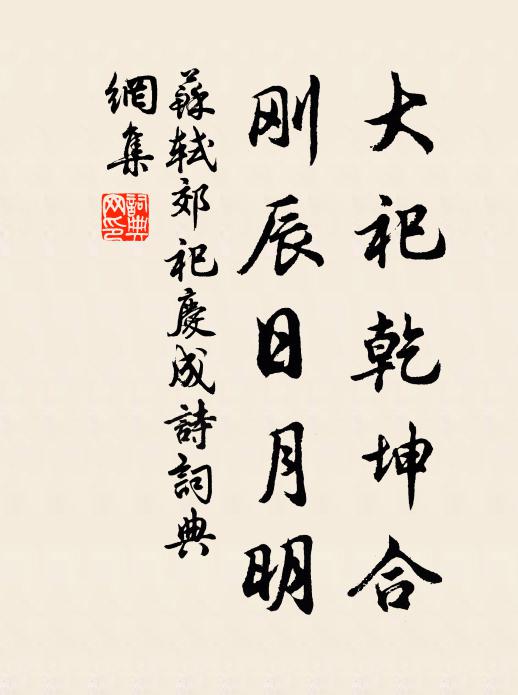 大祀乾坤合
刚辰日月明
蘇軾郊祀慶成詩詞典
網集
詞典
网印